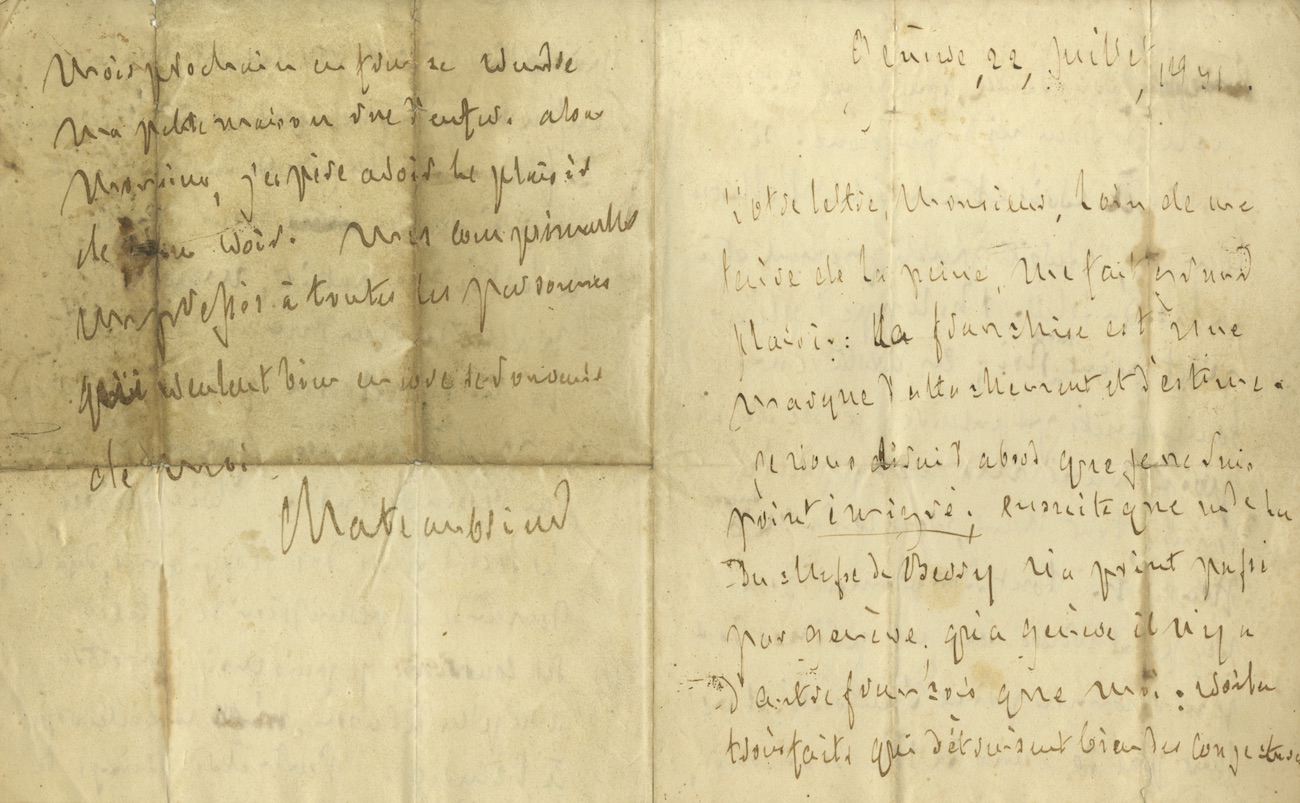 Genève, 22, Juillet, 1831.
Votre lettre, Monsieur, loin de me
faire de la peine, me fait grand
plaisir: la franchise est une
marque d'attachement et d'estime.
je vous dirai d'abord que je ne suis
point émigré; ensuite que Mde la
Duchesse de Berry n'a point passé
par genève; qu'à genève il n'y a
d'autre françois que moi: voilà
trois faits qui détruisent bien des conjectures
mois prochain en france vendre
ma petite maison rue d'enfer. alors
Monsieur, j'espère avoir le plaisir
de vous voir. Mes compliments
empressés à toutes les personnes
qui veulent bien encore se souvenir
de moi
Chateaubriand